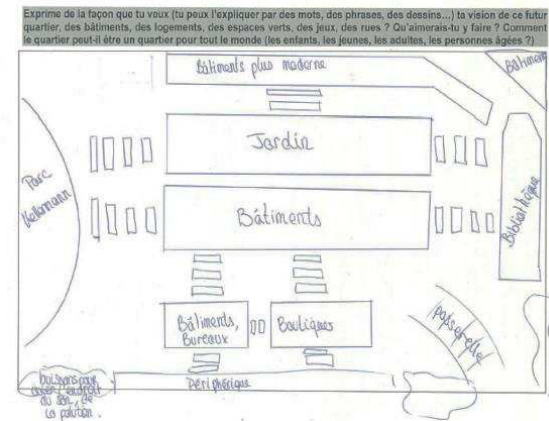 Exprime de la façon que tu veux (tu peux l'expliquer par des mots, des phrases, des dessins...) ta vision de ce futur
quartier, des bâtiments, des logements, des espaces verts, des jeux, des rues ? Qu'aimerais-tu y faire ? Comment
le quartier peut-il être un quartier pour tout le monde (les enfants, les jeunes, les adultes, les personnes âgées ?)
Bâtiments plus moderne
Bâtiment
Jardin
Parc
Kellermann
Bâtiments
Bibliothèque
Bâtiments,
Bureaux
Boutiques
passerelle
Périphérique
buissons pour
du son, de
la polution.